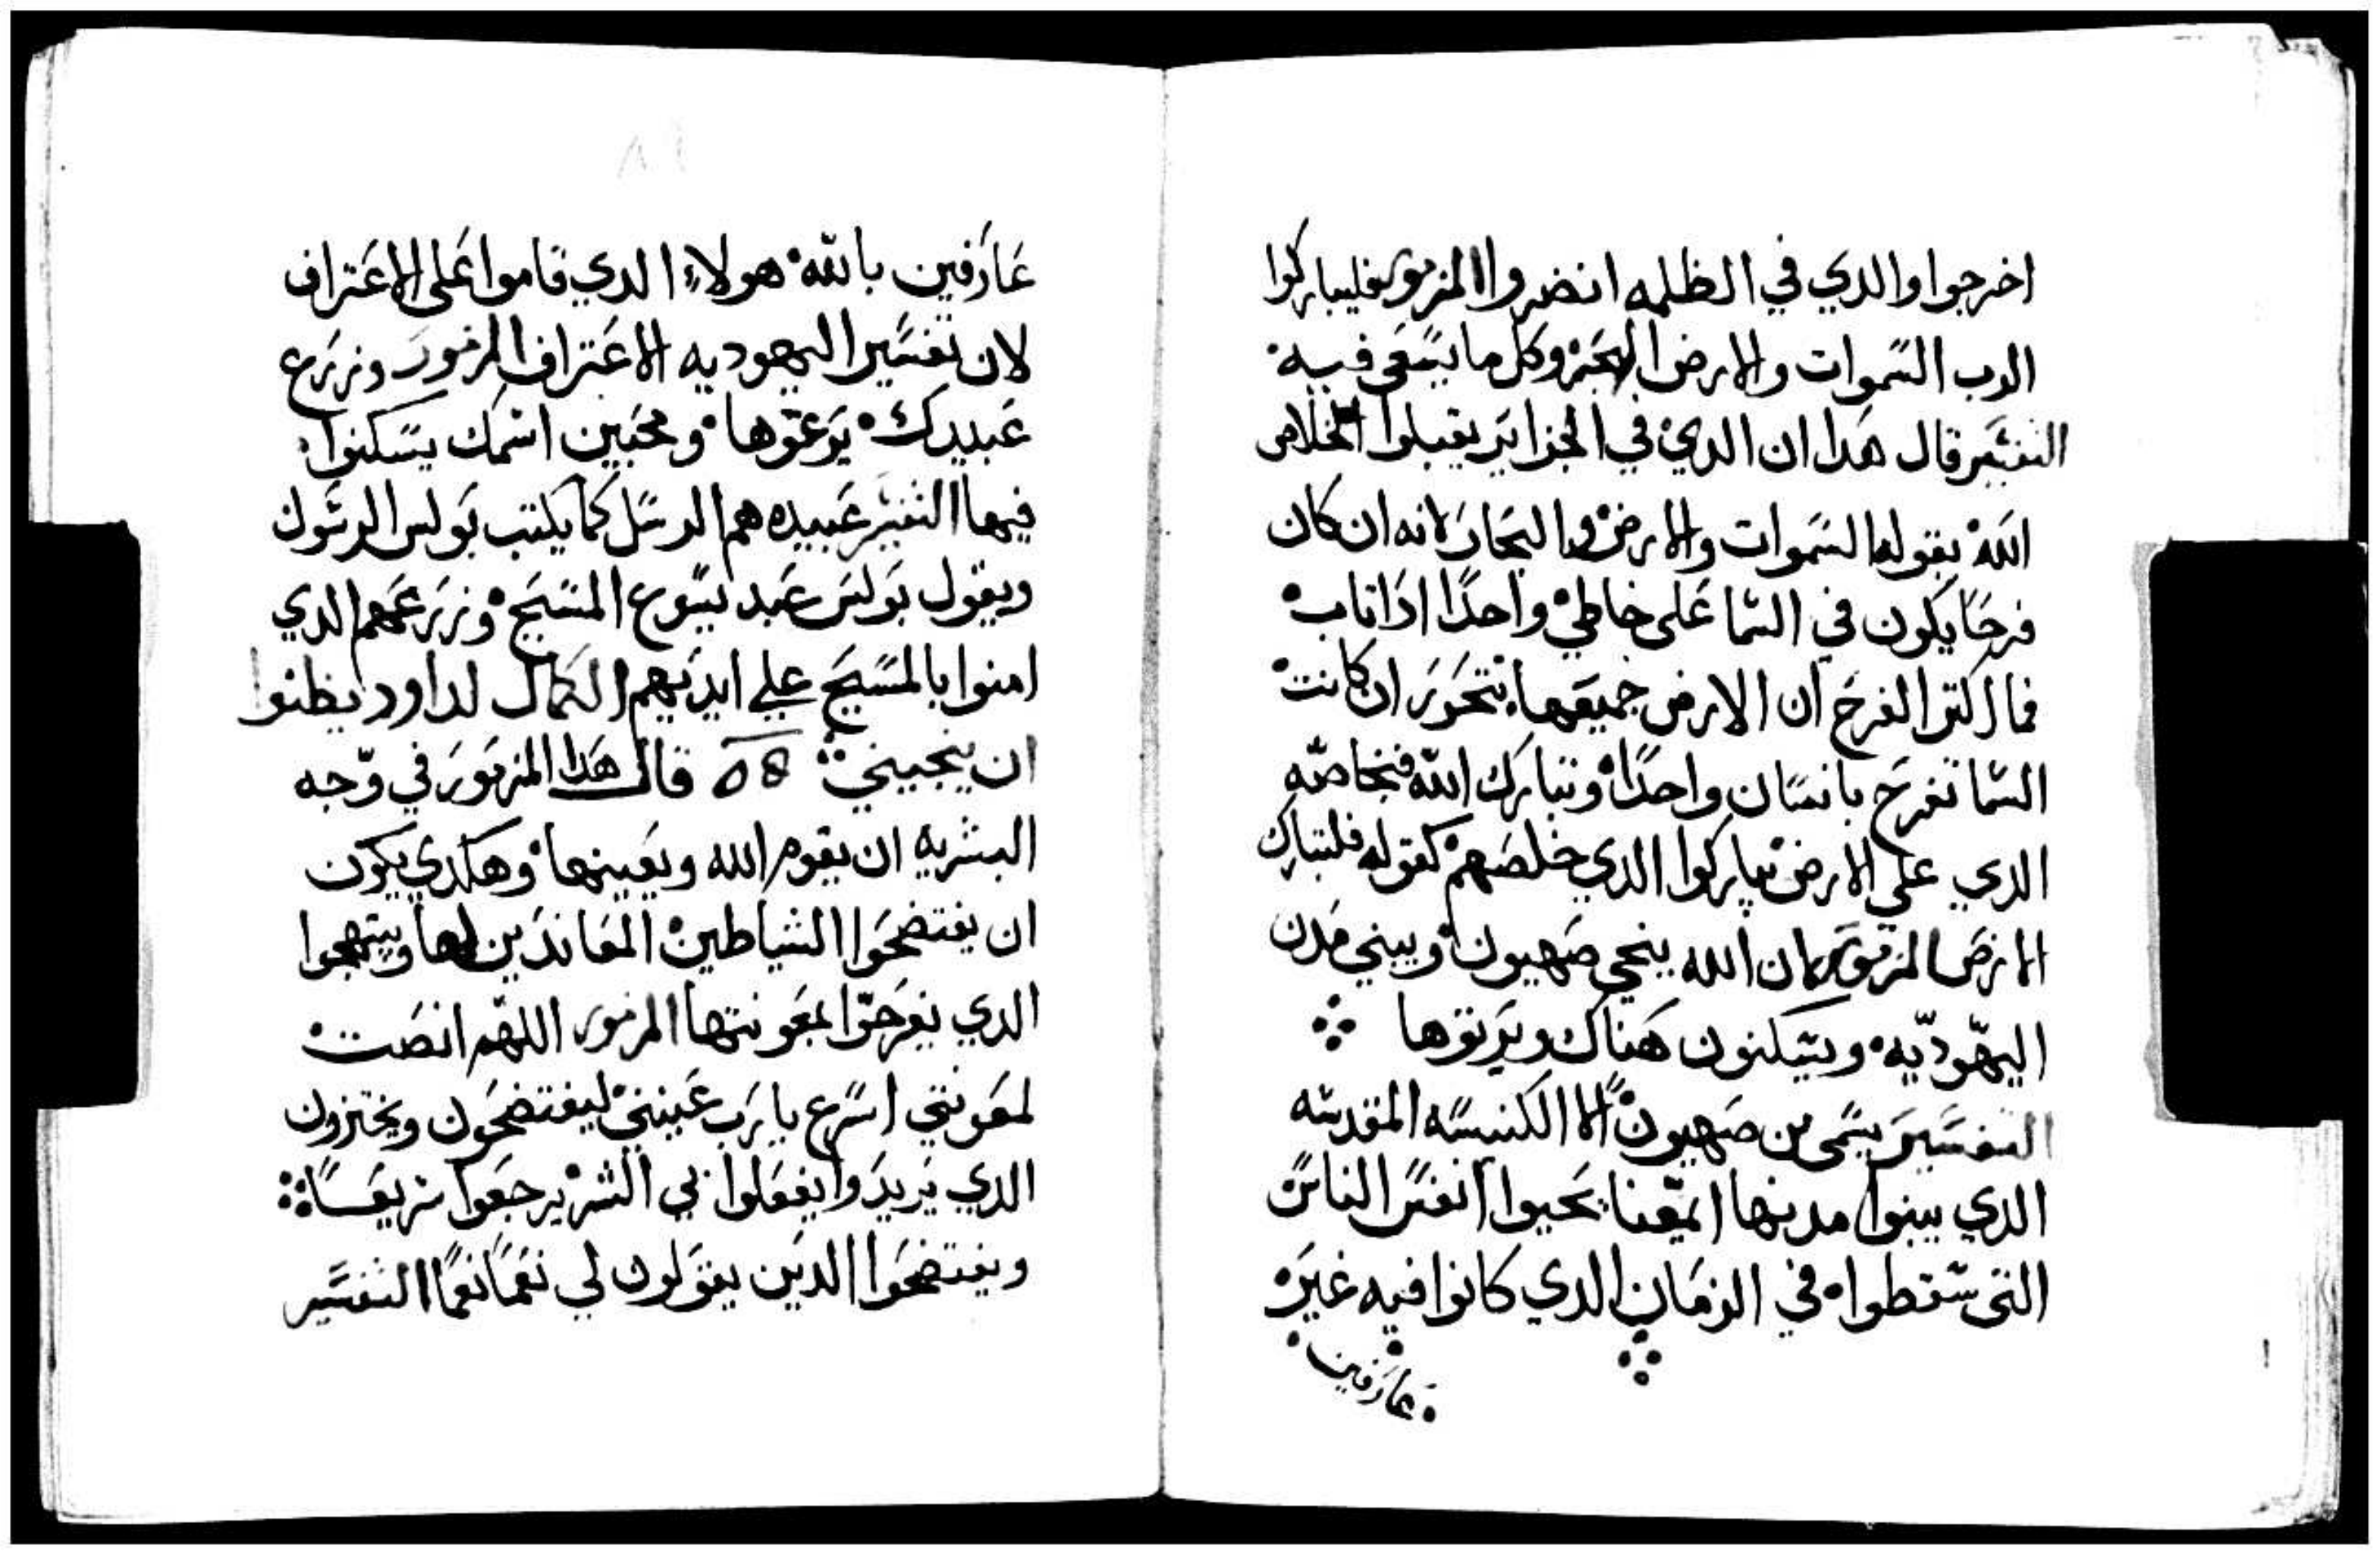 اخرجوا والدي في الظلمه انضروا المزمور فليباركوا
الرب السموات والارض البحر وكل ما يسعى فيه
التفسير قال هدا ان الدي في الجزاير يقبلوا الخلاص
الله بقوله السموات والارض والبحار لانه ان كان
فرحا يكون في السما على خاطي واحدا اداتاب
فما اكتر الفرح ان الارض جميعها تتحور ان كانت
السما تفرح بانسان واحدا وتبارك الله فبخاصه
الدي على الارض يباركوا الدي خلصهم كقوله فلتبارك
الارض المزمور لان الله ينجي صهيون ويبني مدن
اليهوديه ويسكنون هناك ويرتوها
التفسير يسمى من صهيون الا الكنيسه المقدسه
الدي يبنوا مدنها ايضا يحيوا انفس الناس
التي سقطوا في الزمان الدي كانوا فيه غير
عارفين
عارفين بالله هولاء الدي قاموا على الاعتراف
لان تفسير اليهوديه الاعتراف المزمور وزرع
عبيدك يرعوها ومحبين اسمك يسكنوا
فيها التفسير عبيده هم الرسل كما يكتب بولس الرسول
ويقول بولس عبد يسوع المسيح وزرعهم الدي
امنوا بالمسيح علي ايديهم الكمال لداود يظنوا
ان ينجيني قال هدا المزمور في وجه
البشريه ان يقوم الله ويعينها وهكدي يكون
ان يفتضحوا الشياطين المعاندين لها ويبتهجوا
الدي يفرحوا لمعونتها المزمور اللهم انصت
لمعونتي اسرع يا رب عينني ليفتضحون ويختزون
الدي يريدوا يفعلوا بي الشر يرجعوا سريعا
ويفتضحوا الدين يقولون لي نعما نعما التفسير